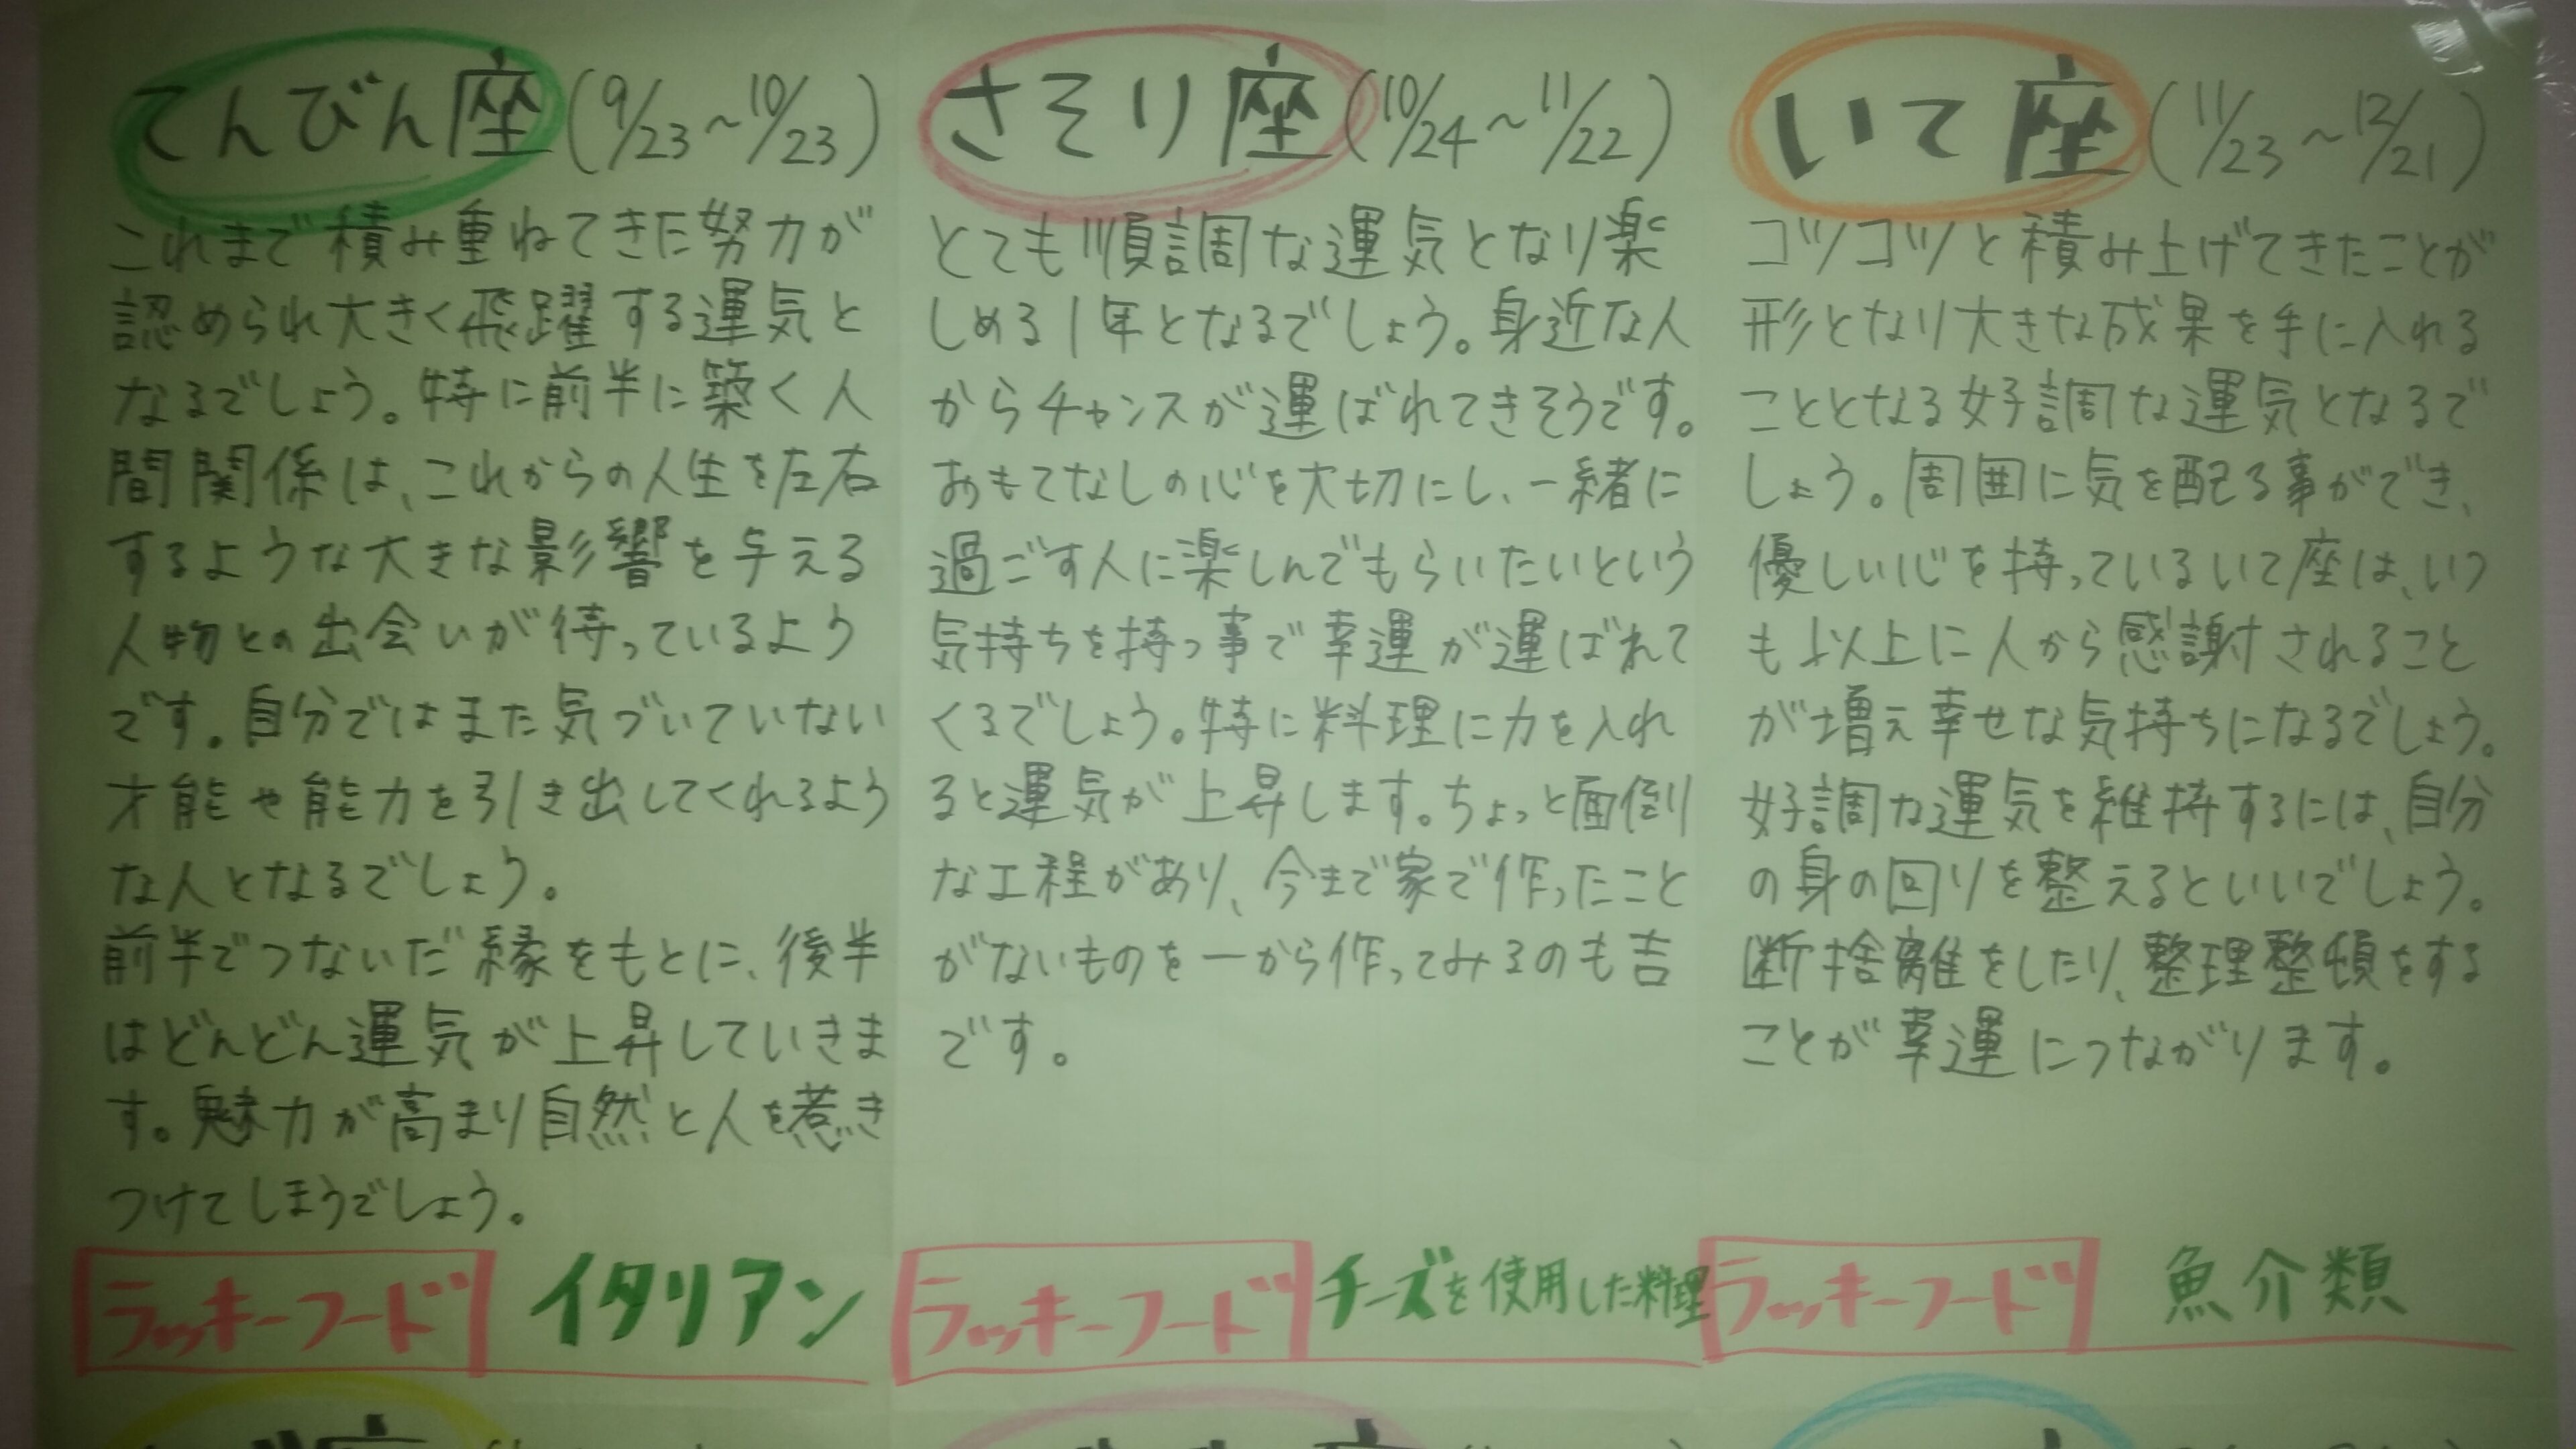 てんびん座(9/23～10/23)
これまで積み重ねてきた努力が
認められ大きく飛躍する運気と
なるでしょう。特に前半に築く人
間関係は、これからの人生を左右
するような大きな影響を与える
人物との出会いが待っているよう
です。自分ではまた気づいていない
才能や能力を引き出してくれるよう
な人となるでしょう。
前半でつないだ縁をもとに、後半
はどんどん運気が上昇していきま
す。魅力が高まり自然と人を惹き
つけてしまうでしょう。
ラッキーフード イタリアン
さそり座(10/24～11/22)
とても順調な運気となり楽
しめる1年となるでしょう。身近な人
からチャンスが運ばれてきそうです。
おもてなしの心を大切にし、一緒に
過ごす人に楽しんでもらいたいという
気持ちを持つ事で幸運が運ばれて
くるでしょう。特に料理に力を入れ
ると運気が上昇します。ちょっと面倒
な工程があり、今まで家で作ったこと
がないものを一から作ってみるのも吉
です。
ラッキーフード チーズを使用した料理
いて座(11/23～12/21)
コツコツと積み上げてきたことが
形となり大きな成果を手に入れる
こととなる好調な運気となるで
しょう。周囲に気を配る事ができ、
優しい心を持っているいて座は、いつ
も以上に人から感謝されること
が増え幸せな気持ちになるでしょう。
好調な運気を維持するには、自分
の身の回りを整えるといいでしょう。
断捨離をしたり、整理整頓をする
ことが幸運につながります。
ラッキーフード 魚介類